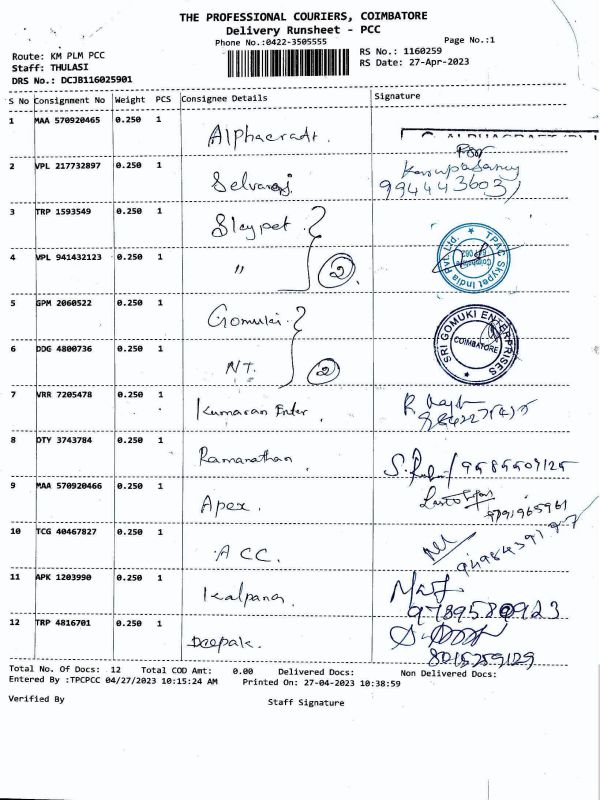 THE PROFESSIONAL COURIERS, COIMBATORE
Delivery Runsheet - PCC
Phone No.:0422-3505555
Page No.:1
Route: KM PLM PCC
RS No.: 1160259
Staff: THULASI
RS Date: 27-Apr-2023
DRS No.: DCJB116025901
S No Consignment No Weight PCS Consignee Details Signature
1 MAA 570920465 0.250 1 Alphacraft.
2 VPL 217732897 0.250 1 Selvaraj 9944436031
3 TRP 1593549 0.250 1 Skypet
4 VPL 941432123 0.250 1 " 2 TPAC Skypet India Pvt. Ltd. Coimbatore
5 GPM 2060522 0.250 1 Gomuki SRI GOMUKI ENTERPRISES COIMBATORE
6 DDG 4800736 0.250 1 NT. 2
7 VRR 7205478 0.250 1 Kumaran Enter
8 DTY 3743784 0.250 1 Ramanathan
9 MAA 570920466 0.250 1 Apex. 9791965961
10 TCG 40467827 0.250 1 ACC.
11 APK 1203990 0.250 1 Kalpana
12 TRP 4816701 0.250 1 Deepak. 8015259129
Total No. Of Docs: 12 Total COD Amt: 0.00 Delivered Docs: Non Delivered Docs:
Entered By :TPCPCC 04/27/2023 10:15:24 AM Printed On: 27-04-2023 10:38:59
Verified By Staff Signature